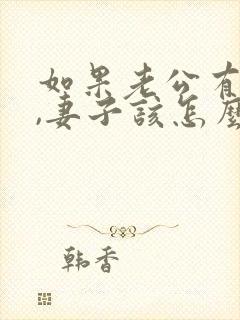 如果老公有
,妻子该怎麽
韩香